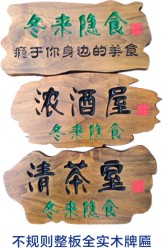 冬来隐食
隐于你身边的美食
浓酒屋
冬来隐食
清茶室
冬来隐食
不规则整板全实木牌匾